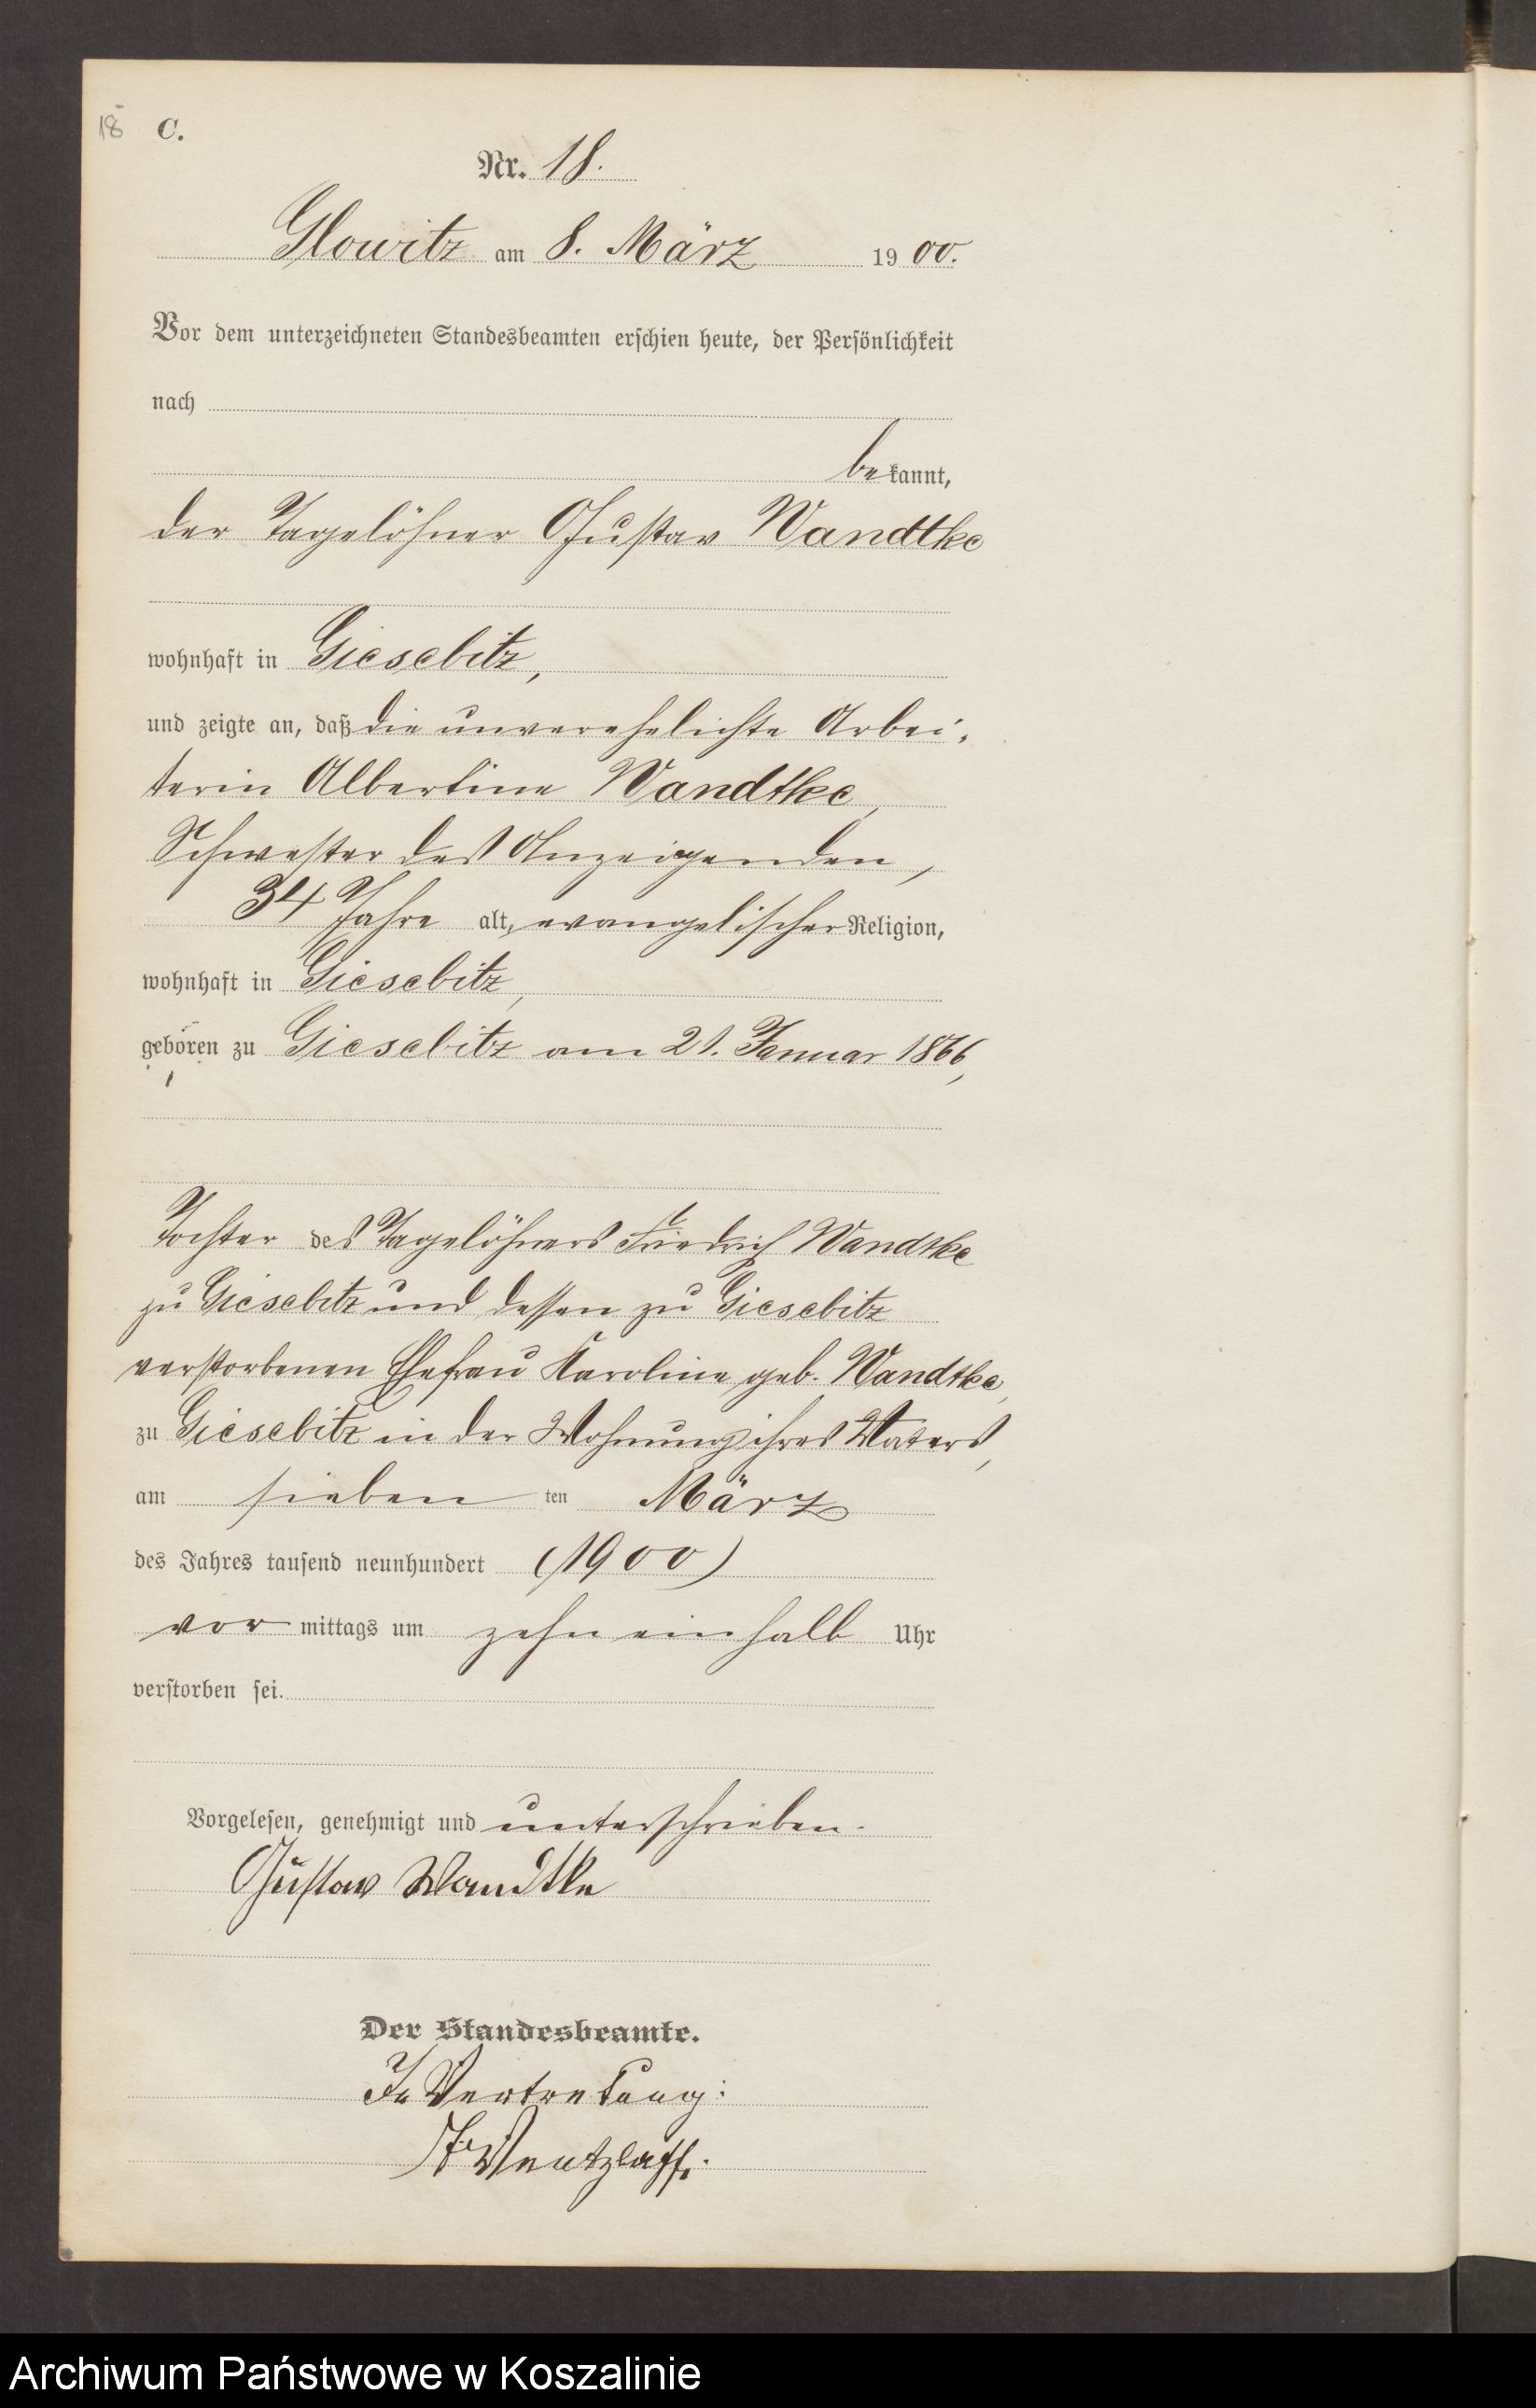 18 C.
Nr. 18.
Glowitz am 8. März 1900.
Vor dem unterzeichneten Standesbeamten erschien heute, der Persönlichkeit
nach
bekannt,
der Tagelöhner Gustav Wandtke
wohnhaft in Giesebitz,
und zeigte an, daß die unverehelichte Arbei-
terin Albertine Wandtke,
Schwester des Anzeigenden,
34 Jahre alt, evangelischer Religion,
wohnhaft in Giesebitz,
geboren zu Giesebitz am 21. Januar 1866,
Tochter des Tagelöhners Friedrich Wandtke
zu Giesebitz und dessen zu Giesebitz
verstorbenen Ehefrau Karoline geb. Wandtke,
zu Giesebitz in der Wohnung ihres Vaters,
am sieben ten März
des Jahres tausend neunhundert (1900)
vor mittags um zehn einhalb Uhr
verstorben sei.
Vorgelesen, genehmigt und unterschrieben.
Gustav Wandtke
Der Standesbeamte.
In Vertretung:
Wentzlaff.
Archiwum Państwowe w Koszalinie